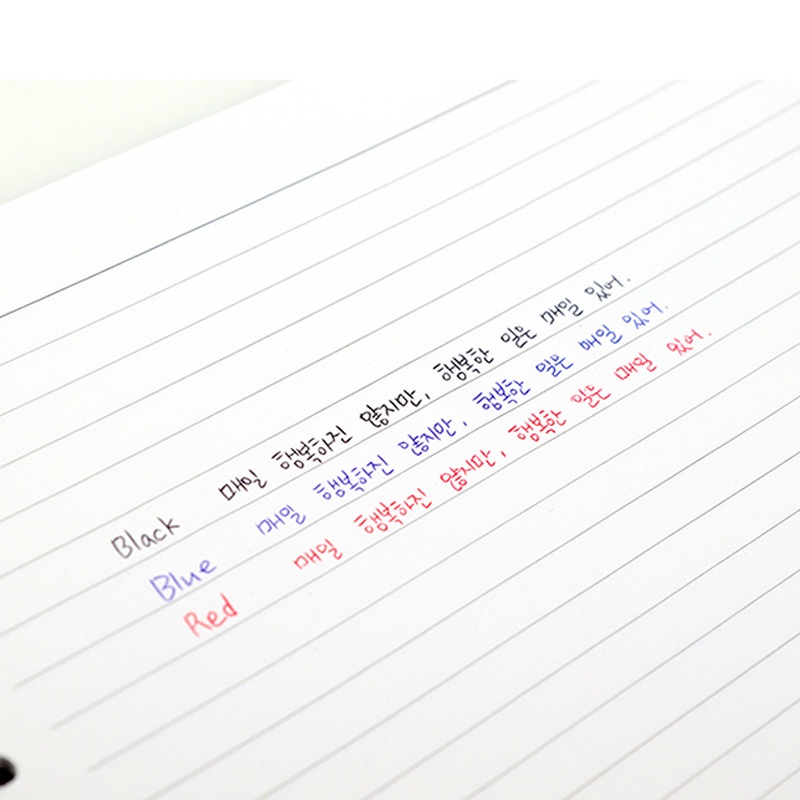 Black 매일 행복하진 않지만, 행복한 일은 매일 있어.
Blue 매일 행복하진 않지만, 행복한 일은 매일 있어.
Red 매일 행복하진 않지만, 행복한 일은 매일 있어.